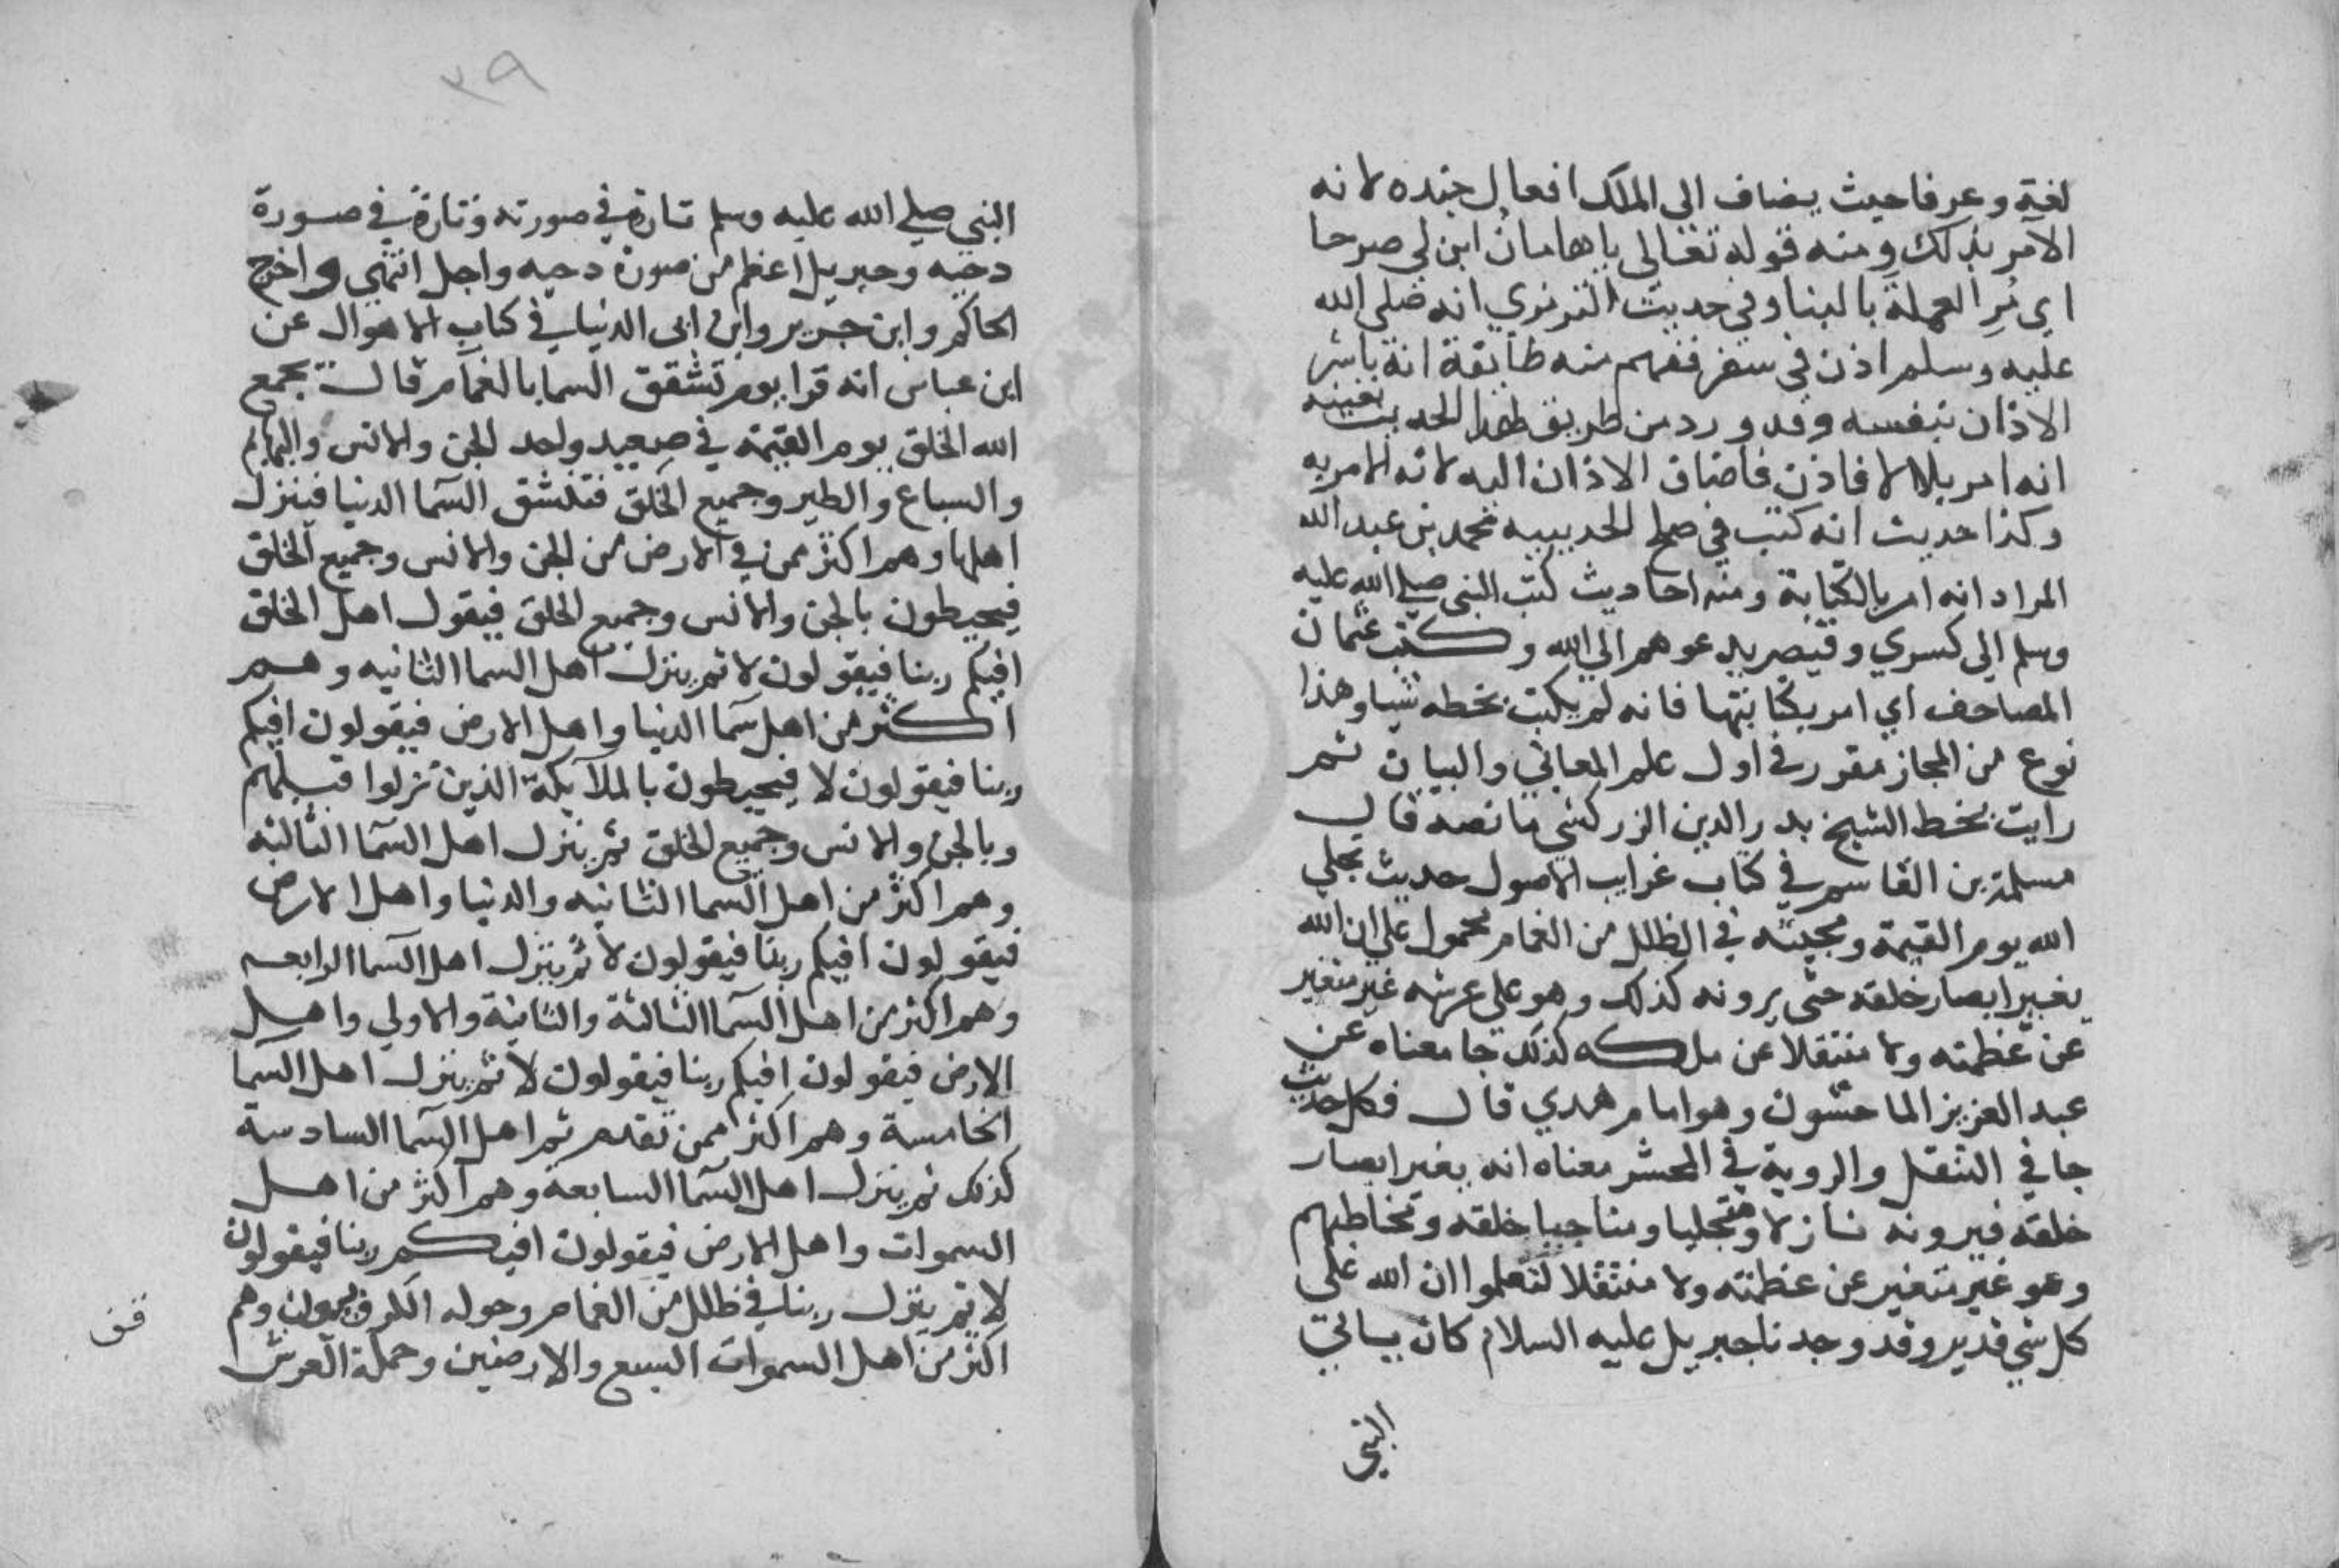 لغة وعرفا حيث يضاف الى الملك افعال جنده لانه
الآمر بذلك ومنه قوله تعالى ياهامان ابن لي صرحا
اي مُرِ العملة بالبنا وفي حديث الترمذي انه صلى الله
عليه وسلم اذن في سفر ففهم منه طايفة انه باشر
الاذان بنفسه وقد ورد من طريق لهذا الحديث بعينه
انه امر بلالا فاذن فاضاف الاذان اليه لانه الامر به
وكذا حديث انه كتب في صلح الحديبيه محمد بن عبد الله
المراد انه امر بالكتابة ومنه احاديث كتب النبي صلي الله عليه
وسلم الي كسري وقيصر يدعوهم الي الله وكتب عثمان
المصاحف اي امر بكتابتها فانه لم يكتب بخطه شيا وهذا
نوع من المجاز مقرر في اول علم المعاني والبيان ثم
رايت بخط الشيخ بدر الدين الزركشي ما نصه قال
مسلمة بن القاسم في كتاب غرايب الاصول حديث تجلي
الله يوم القيمة ومجيئه في الظلل من الغمام محمول علي ان الله
يغير ابصار خلقه حتى يرونه كذلك وهو على عرشه غير متغير
عن عظمته ولا منتقلا عن ملكه كذلك جا معناه عن
عبد العزيز الماحشون وهو امام هدي قال فكل حديث
جا في التنقل والروية في المحشر معناه انه يغير ابصار
خلقه فيرونه نازلا ومتجليا ومناجيا خلقه وتخاطبهم
وهو غير متغير عن عظمته ولا منتقلا لتعلموا ان الله على
كل شي قدير وقد وجدنا جبريل عليه السلام كان ياتي
النبي
٣٩
النبي صلي الله عليه وسلم تارة في صورته وتارة في صورة
دحيه وجبريل اعظم من صورة دحيه واجل انتهى واخرج
الحاكم وابن جرير وابن ابى الدنيا في كتاب الاهوال عن
ابن عباس انه قرا يوم تشقق السما بالغمام قال يجمع
الله الخلق يوم القيمة في صعيد واحد الجن والانس والبهايم
والسباع والطير وجميع الخلق فتنشق السما الدنيا فينزل
اهلها وهم اكثر ممن في الارض من الجن والانس وجميع الخلق
فيحيطون بالجن والانس وجميع الخلق فيقول اهل الخلق
افيكم ربنا فيقولون لا ثم ينزل اهل السما الثانيه وهم
اكثر من اهل سما الدنيا واهل الارض فيقولون افيكم
ربنا فيقولون لا فيحيطون بالملآيكة الذين نزلوا قبلهم
وبالجن والانس وجميع الخلق ثم ينزل اهل السما الثالثه
وهم اكثر من اهل السما الثانيه والدنيا واهل الارض
فيقولون افيكم ربنا فيقولون لا ثم ينزل اهل السما الرابعه
وهم اكثر من اهل السما الثالثة والثانية والاولي واهل
الارض فيقولون افيكم ربنا فيقولون لا ثم ينزل اهل السما
الخامسة وهم اكثر ممن تقدم ثم اهل السما السادسة
كذلك ثم ينزل اهل السما السابعة وهم اكثر من اهل
السموات واهل الارض فيقولون افيكم ربنا فيقولون
لا ثم ينزل ربنا في ظلل من الغمام وحوله الكروبيون وهم
اكثر من اهل السموات السبع والارضين وحملة العرش
قف